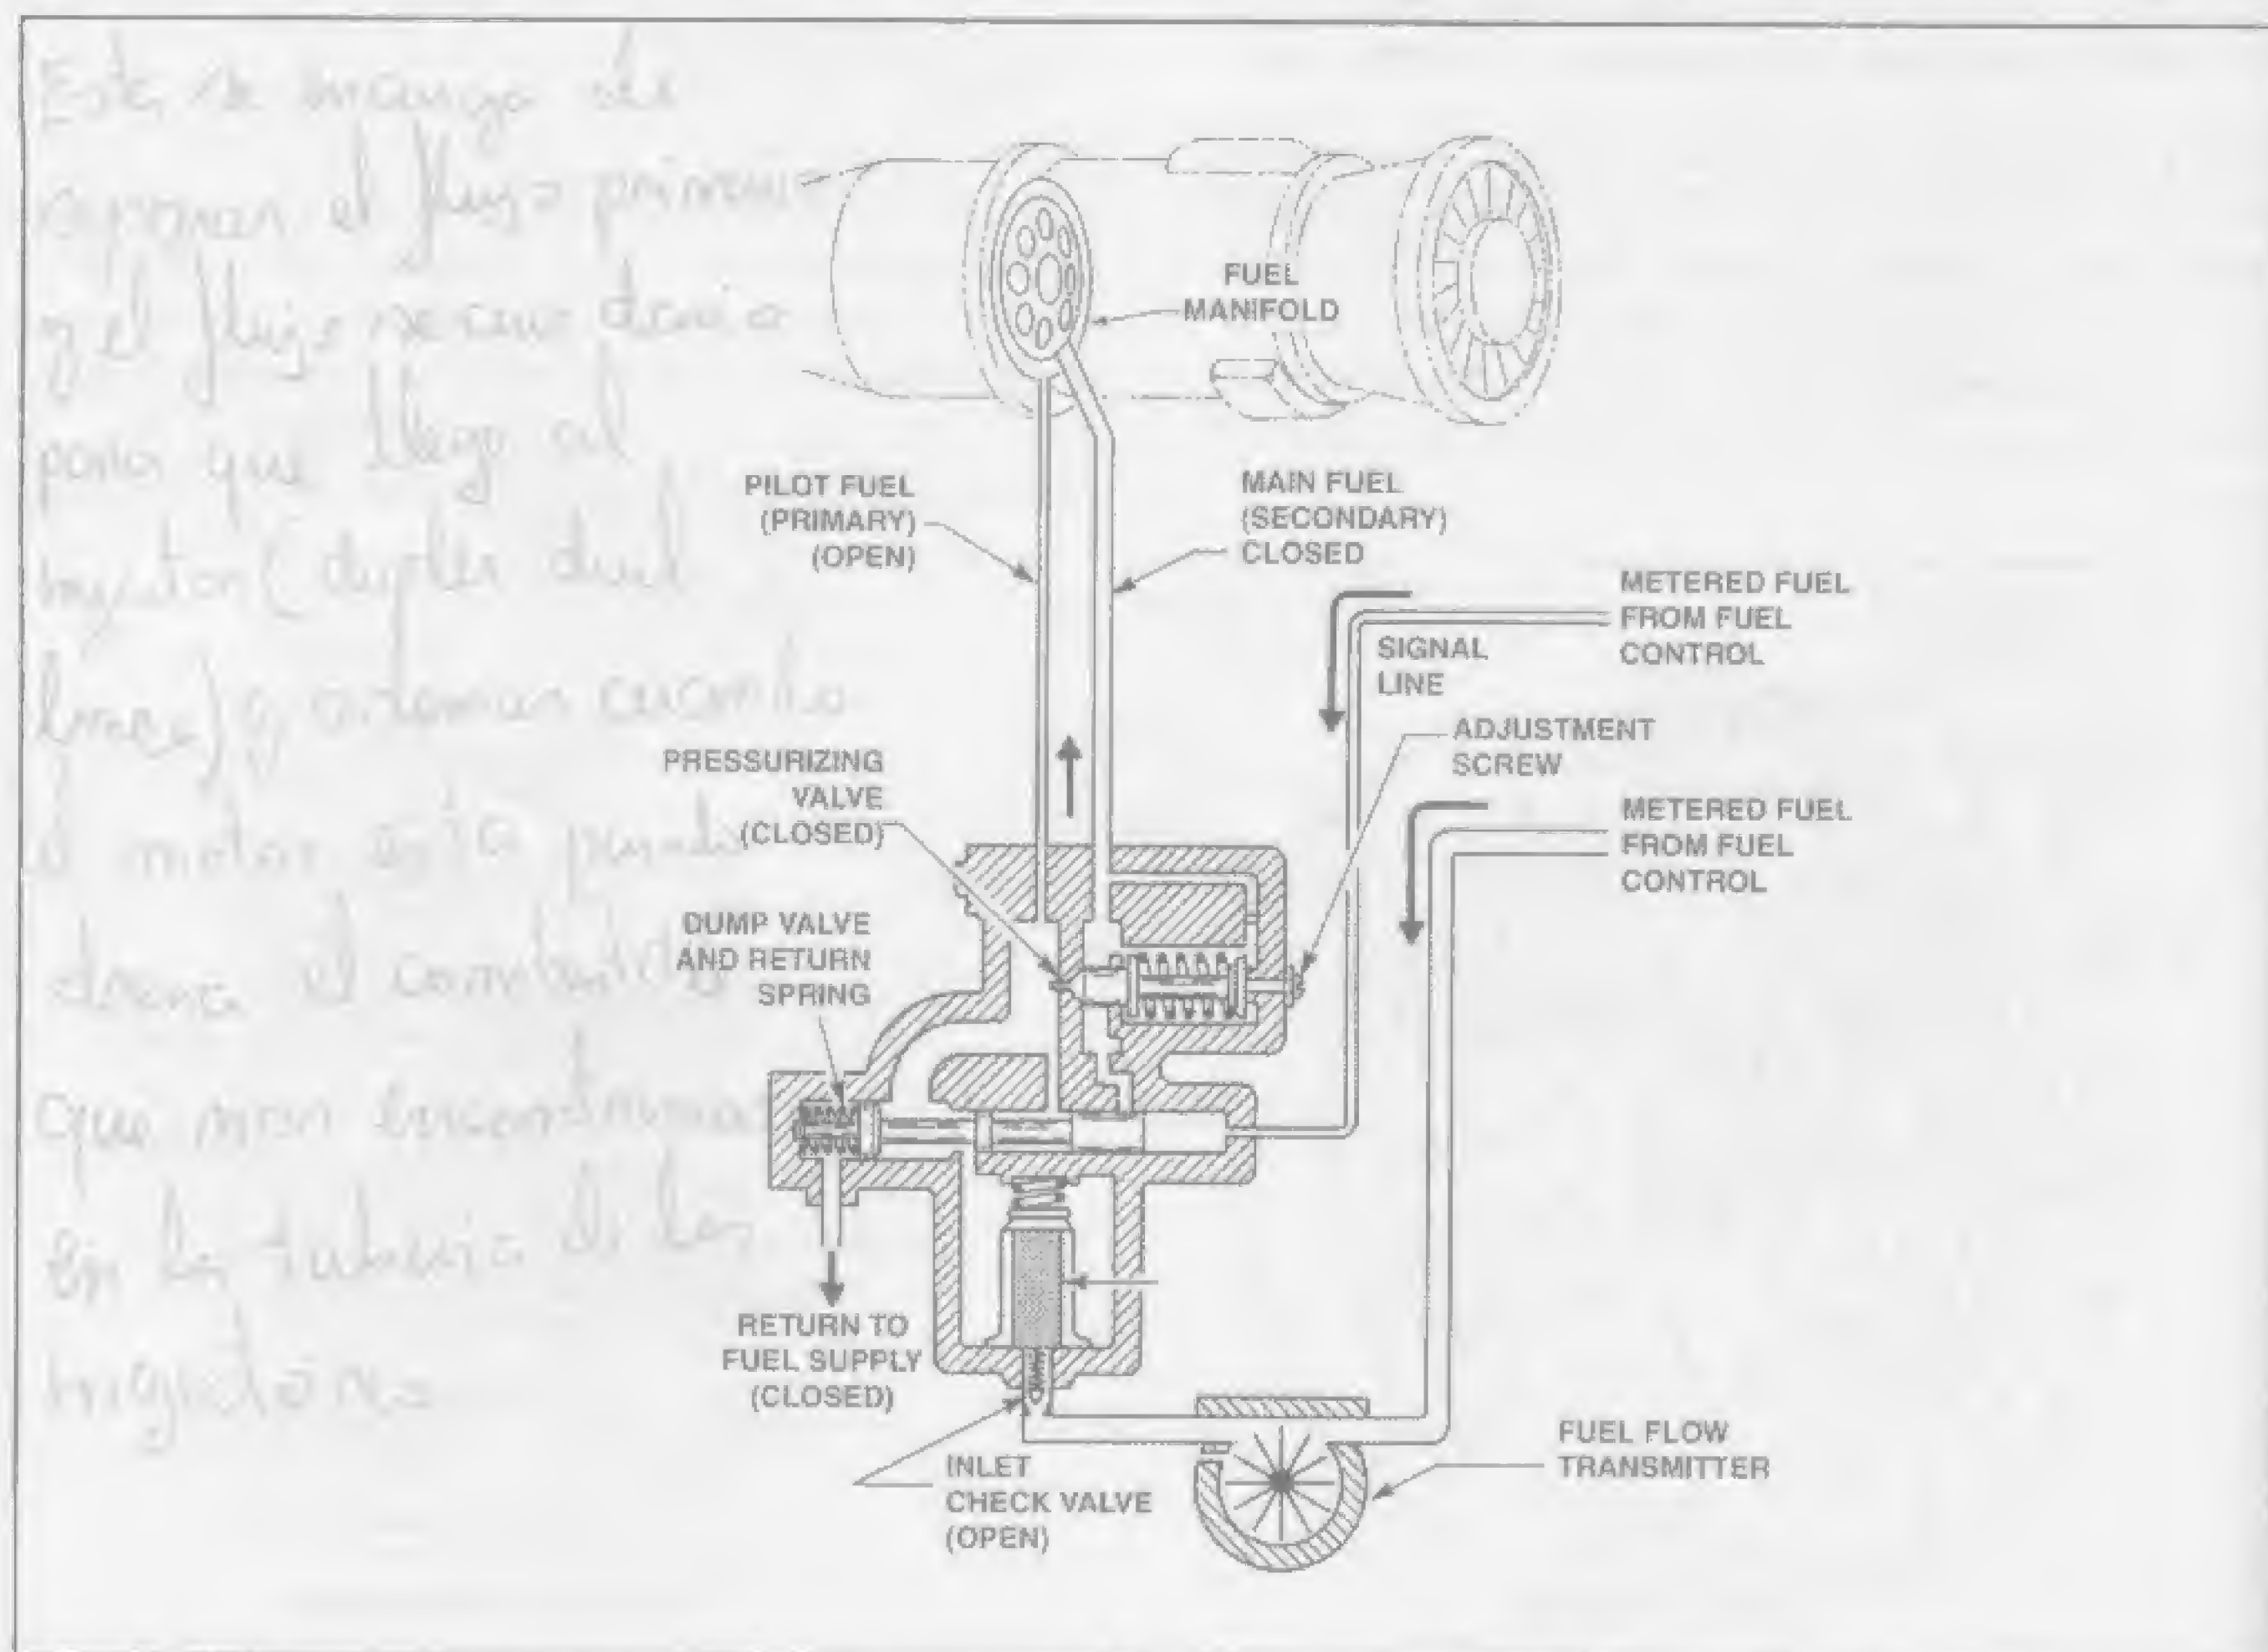 Este se encarga de
separar el flujo primario
y el flujo secundario
para que llegue al
inyector (duplex dual
line) y ademas cuando
el motor esta parado
drena el combustible
Que
en la tuberia de los
inyectores
FUEL
MANIFOLD
PILOT FUEL
(PRIMARY)
(OPEN)
MAIN FUEL
(SECONDARY)
CLOSED
METERED FUEL
FROM FUEL
CONTROL
SIGNAL
LINE
ADJUSTMENT
SCREW
PRESSURIZING
VALVE
(CLOSED)
METERED FUEL
FROM FUEL
CONTROL
DUMP VALVE
AND RETURN
SPRING
RETURN TO
FUEL SUPPLY
(CLOSED)
INLET
CHECK VALVE
(OPEN)
FUEL FLOW
TRANSMITTER